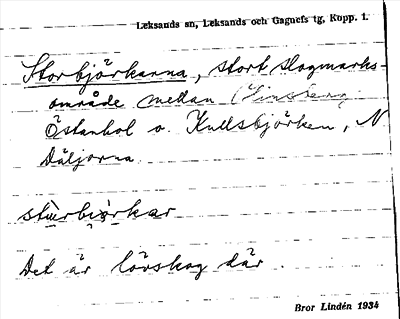 Leksands sn, Leksands och Gagnefs tg, Kopp. l.
Storbjörkarna, stort skogsmarks-
område mellan
Östanhol o. Kullsbjörken, N
Däljorna.
Det är lövskog där.
Bror Lindén 1934